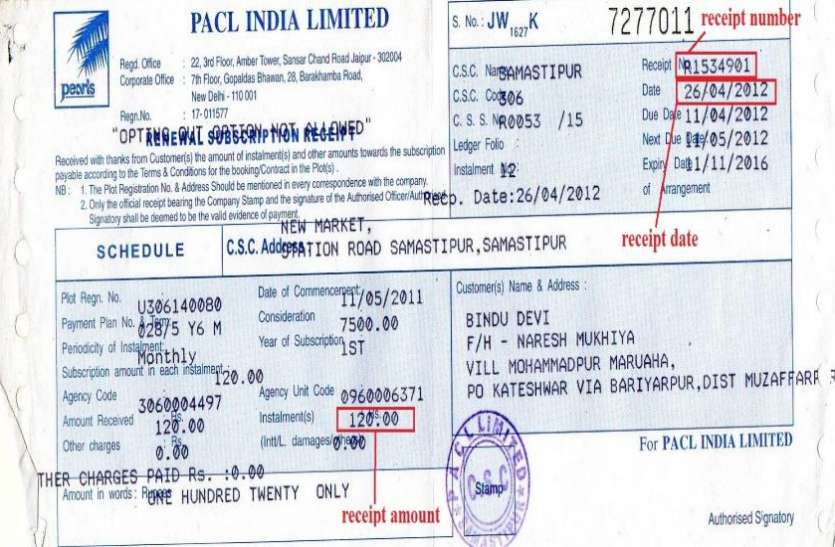 PACL INDIA LIMITED
pearls
Regd. Office : 22, 3rd Floor, Amber Tower, Sansar Chand Road Jaipur - 302004
Corporate Office : 7th Floor, Gopaldas Bhawan, 28, Barakhamba Road,
New Delhi - 110 001
Regn.No. : 17-011577
"OPTING OUT OPTION NOT ALLOWED"
RENEWAL SUBSCRIPTION RECEIPT
Received with thanks from Customer(s) the amount of instalment(s) and other amounts towards the subscription
payable according to the Terms & Conditions for the booking/Contract in the Plot(s) .
NB : 1. The Plot Registration No. & Address Should be mentioned in every correspondence with the company.
2. Only the official receipt bearing the Company Stamp and the signature of the Authorised Officer/Authorised
Signatory shall be deemed to be the valid evidence of payment.
S. No.: JW 1627 K 7277011
receipt number
C.S.C. Name SAMASTIPUR Receipt No R1534901
C.S.C. Code 306 Date 26/04/2012
C. S. S. No R0053 /15 Due Date 11/04/2012
Ledger Folio : Next Due 11/05/2012
Instalment No: 12 Expiry Date 11/11/2016
of Arrangement
Recp. Date:26/04/2012
receipt date
SCHEDULE
C.S.C. Address NEW MARKET,
STATION ROAD SAMASTIPUR,SAMASTIPUR
Plot Regn. No. U306140080 Date of Commencement 11/05/2011
Payment Plan No. & Term 028/5 Y6 M Consideration 7500.00
Periodicity of Instalment: Monthly Year of Subscription 1ST
Subscription amount in each instalment : 120.00
Agency Code 3060004497 Agency Unit Code 0960006371
Amount Received Rs. 120.00 Instalment(s) Rs. 120.00
Other charges Rs. 0.00 (Intt/L. damages/other) 0.00
THER CHARGES PAID Rs. :0.00
Amount in words : Rupees ONE HUNDRED TWENTY ONLY
receipt amount
Customer(s) Name & Address :
BINDU DEVI
F/H - NARESH MUKHIYA
VILL MOHAMMADPUR MARUAHA,
PO KATESHWAR VIA BARIYARPUR,DIST MUZAFFARP
PACL LIMITED
C.S.C
Stamp
For PACL INDIA LIMITED
Authorised Signatory